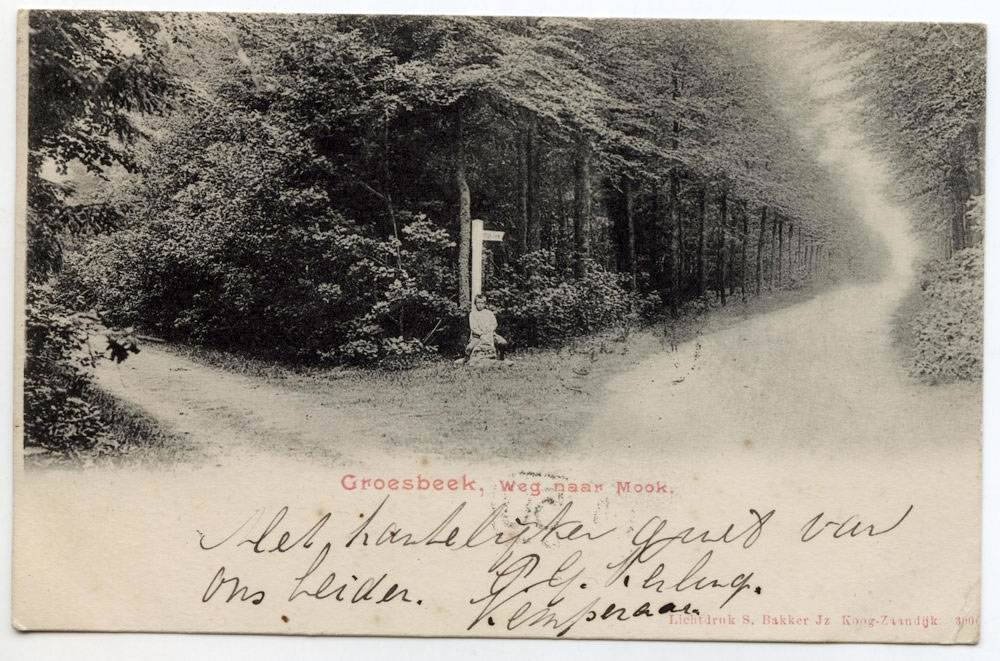 Groesbeek, Weg naar Mook.
Met hartelijker groet van
ons beider. P. G.
Lichtdruk S. Bakker Jz Koog-Zaandijk.